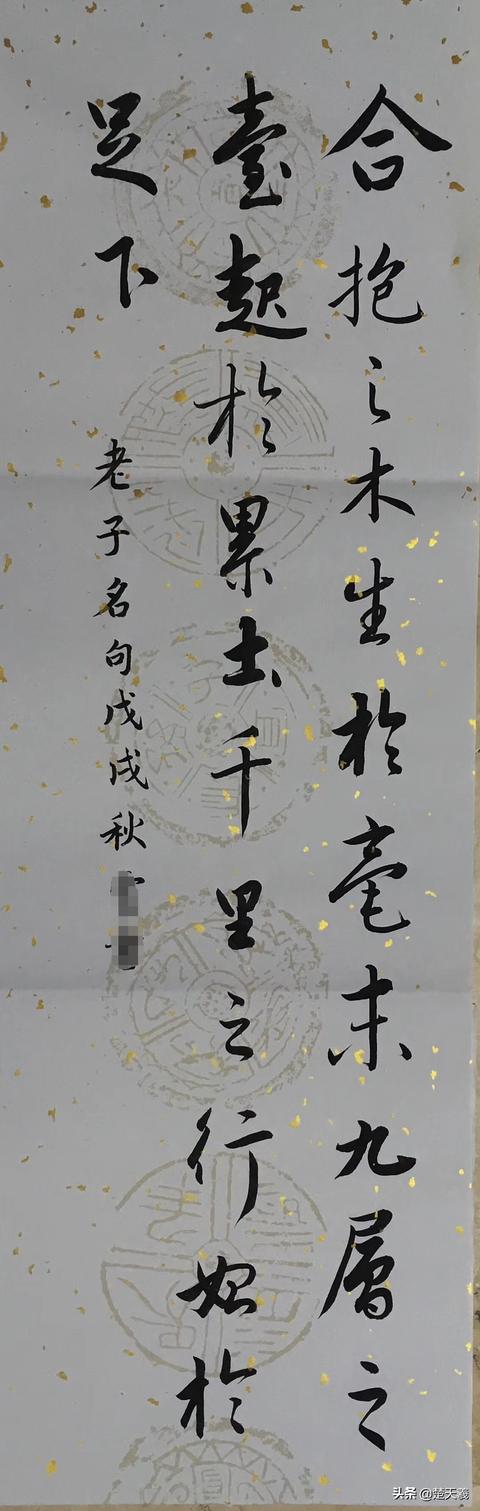 合抱之木生於毫末九層之
臺起於累土千里之行始於
足下
老子名句戊戌秋
头条@楚天羲